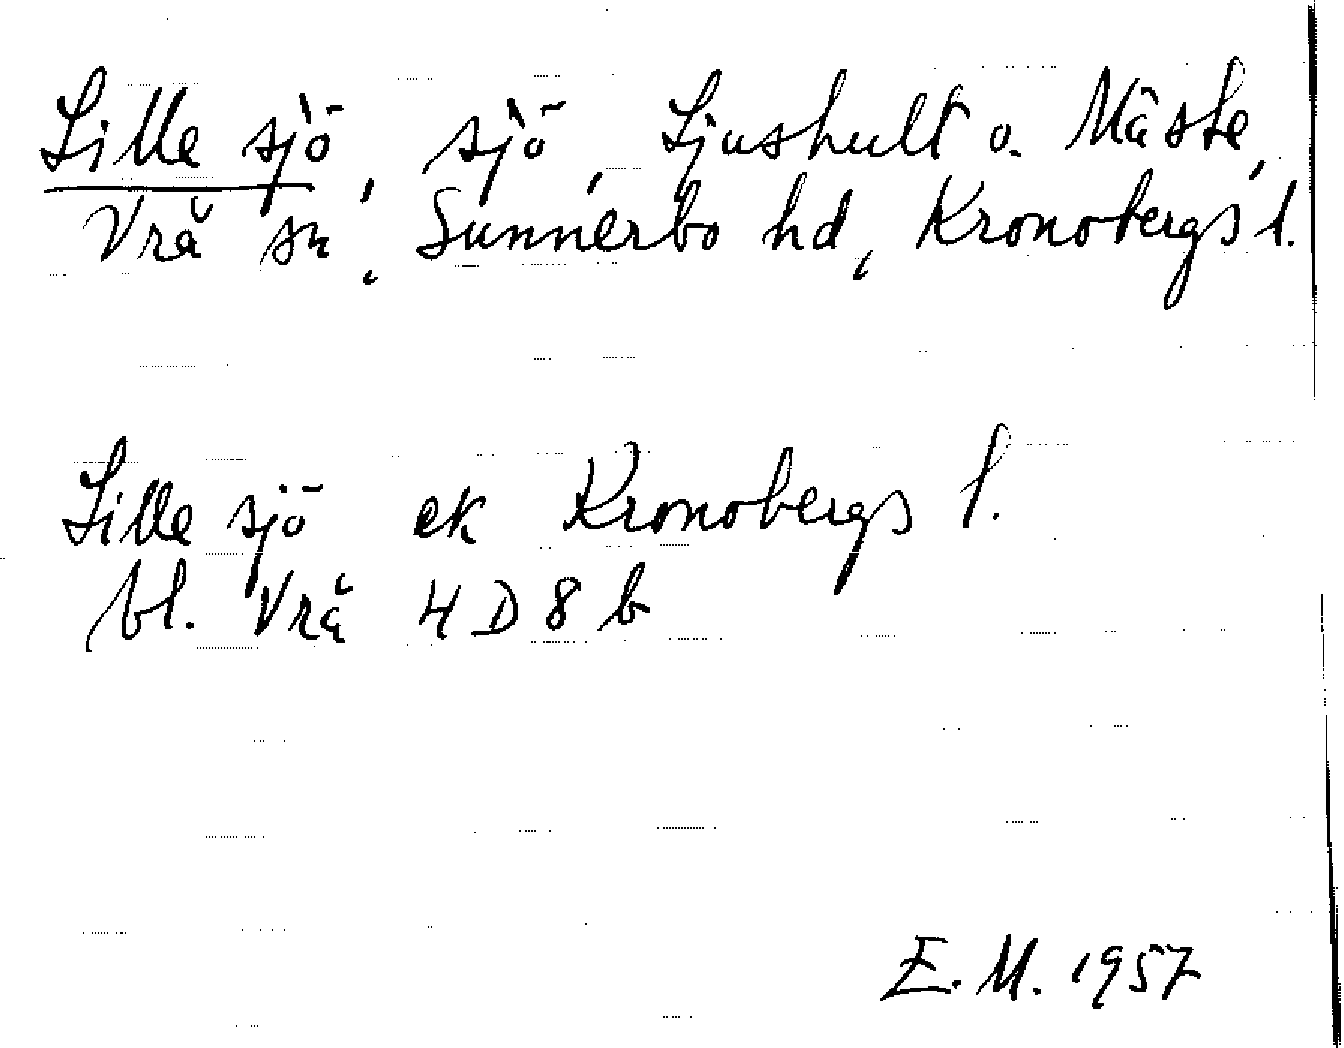 Lille sjö, sjö, Ljushult o. Måste,
Vrå sn, Sunnerbo hd, Kronobergs l.
Lille sjö ek Kronobergs l.
bl. Vrå 4D8b
E.M. 1957